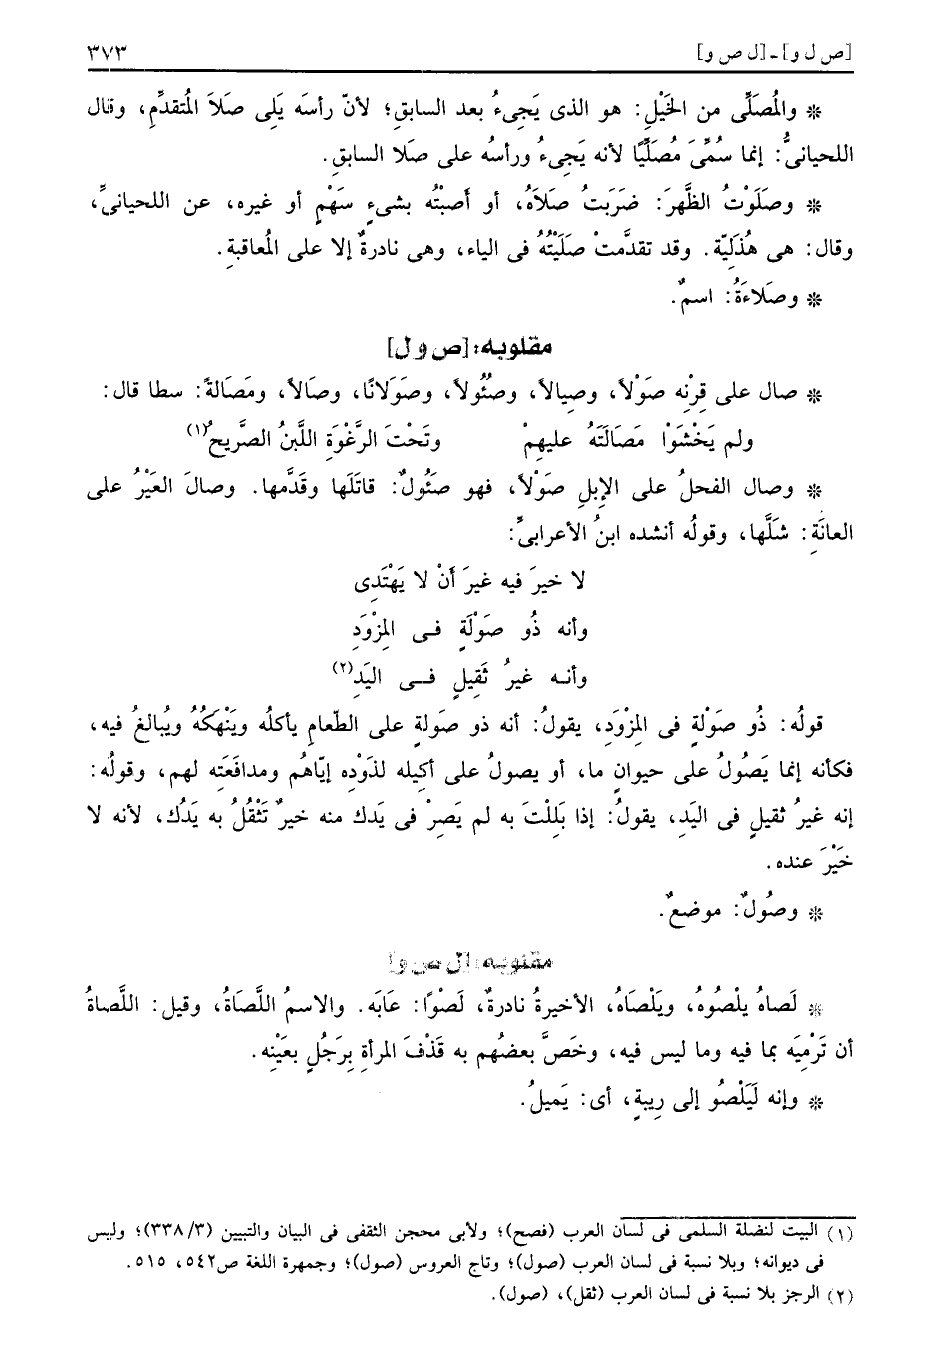 [ص ل و] - [ل ص و] ٣٧٣
* والمُصَلِّى من الخَيْلِ: هو الذى يَجىءُ بعد السابقِ؛ لأنّ رأسَه يَلِى صَلاَ المُتقدِّمِ، وقال
اللحيانىُّ: إنما سُمِّىَ مُصَلِّيًا لأنه يَجىءُ ورأسُه على صَلا السابقِ.
* وصَلَوْتُ الظَّهرَ: ضرَبتُ صَلاَهُ، أو أَصبْتُه بشىءٍ سَهْمٍ أو غيرِه، عن اللحيانىِّ،
وقال: هى هُذَلِيّة. وقد تقدَّمتْ صَلَيْتُهُ فى الياء، وهى نادرةٌ إلا على المُعاقبةِ.
* وصَلاءَةُ: اسمٌ.
مقلوبه: [ص و ل]
* صال على قِرْنِه صَوْلاً، وصِيالاً، وصُئُولاً، وصَوَلانًا، وصَالاً، ومَصَالةً: سطا قال:
ولم يَخْشَوْا مَصَالَتَهُ عليهِمْ وتَحْتَ الرَّغْوَةِ اللَّبنُ الصَّريحُ(١)
* وصال الفحلُ على الإبلِ صَوْلاً، فهو صَئُولٌ: قاتَلَها وقَدَّمها. وصالَ العَيْرُ على
العانَةِ: شَلَّها، وقولُه أنشده ابنُ الأعرابىِّ:
لا خيرَ فيه غيرَ أَنْ لا يَهْتَدِى
وأنه ذُو صَوْلَةٍ فى المِزْوَدِ
وأنه غيرُ ثَقِيلٍ فى اليَدِ(٢)
قولُه: ذُو صَوْلةٍ فى المِزْوَدِ، يقولُ: أنه ذو صَولةٍ على الطّعامِ يأكلُه ويَنْهَكُهُ ويُبالغُ فيه،
فكأنه إنما يَصُولُ على حيوانٍ ما، أو يصولُ على أكيلِه لذَوْدِه إيّاهُم ومدافَعَتِه لهم، وقولُه:
إنه غيرُ ثقيلٍ فى اليَدِ، يقولُ: إذا بَلِلْتَ به لم يَصِرْ فى يَدِك منه خيرٌ تَثْقُلُ به يَدُك، لأنه لا
خَيْرَ عنده.
* وصُولٌ: موضعٌ.
مقلوبه: [ل ص و]
* لَصاهُ يلْصُوهُ، ويَلْصَاهُ، الأخيرةُ نادرةٌ، لَصْوًا: عَابَه. والاسمُ اللَّصَاةُ، وقيل: اللَّصاةُ
أن تَرْمِيَه بما فيه وما ليس فيه، وخَصَّ بعضُهم به قَذْفَ المرأةِ بِرَجُلٍ بعَيْنِه.
* وإنه لَيَلْصُو إلى رِيبةٍ، أى: يَميلُ.
(١) البيت لنضلة السلمى فى لسان العرب (فصح)؛ ولأبى محجن الثقفى فى البيان والتبيين (٣٣٨/٣)؛ وليس
فى ديوانه؛ وبلا نسبة فى لسان العرب (صول)؛ وتاج العروس (صول)؛ وجمهرة اللغة ص٥٤٢، ٥١٥.
(٢) الرجز بلا نسبة فى لسان العرب (ثقل)، (صول).